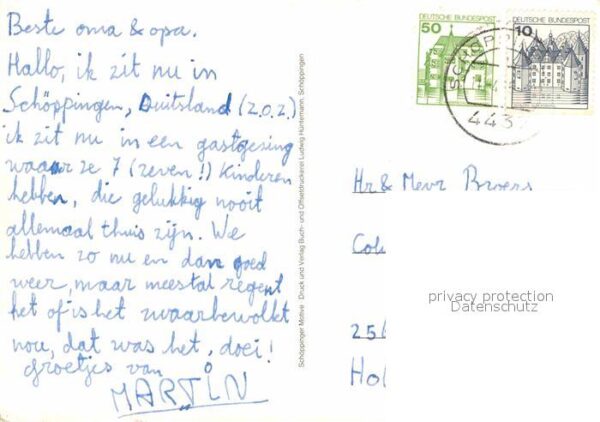 Beste oma & opa.
Hallo, ik zit nu in
Schöppingen, Duitsland (z.o.z.)
ik zit nu in een gastgesing
waaar ze 7 (zeven!) Kinderen
hebben, die gelukkig nooit
allemaal thuis zijn. We
hebben zo nu en dan goed
weer, maar meestal regent
het of is het zwaarbewolkt
nou, dat was het, doei!
Groetjes van
MARTIN
Schöppinger Motive Druck und Verlag Buch- und Offsetdruckerei Ludwig Huntemann, Schöppingen
50
DEUTSCHE BUNDESPOST
10
DEUTSCHE BUNDESPOST
SCHÖPP
443
Hr & Mevr
Col
privacy protection
Datenschutz
25
Hol